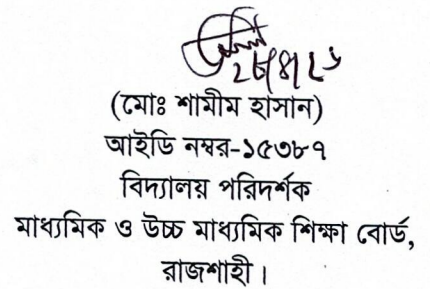 (মোঃ শামীম হাসান)
আইডি নম্বর-১৫৩৮৭
বিদ্যালয় পরিদর্শক
মাধ্যমিক ও উচ্চ মাধ্যমিক শিক্ষা বোর্ড,
রাজশাহী।